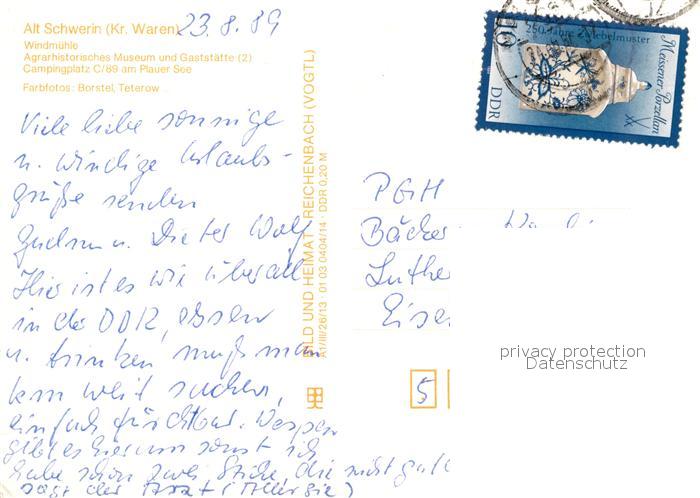 Alt Schwerin (Kr. Waren) 23.8.89
Windmühle
Agrarhistorisches Museum und Gaststätte (2)
Campingplatz C/89 am Plauer See
Farbfotos: Borstel, Teterow
Viele liebe sonnige
u. windige Urlaubs-
grüße senden
Gudrun u. Dieter Wolf
Hier ist es wie überall
in der DDR, essen
u. trinken muß man
kann weit suchen,
einfach furchtbar. Wespen
gibt es hier sonst ich
habe schon zwei Stiche, die nicht gut
sagt der Arzt (Allergie)
BILD UND HEIMAT REICHENBACH (VOGTL)
A1/III/26/13 01 03 0404/14 · DDR 0,20 M
250 Jahre Zwiebelmuster
Meissener Porzellan
DDR
10
PGH
Bäcker
Luthe
Eise
5
privacy protection
Datenschutz